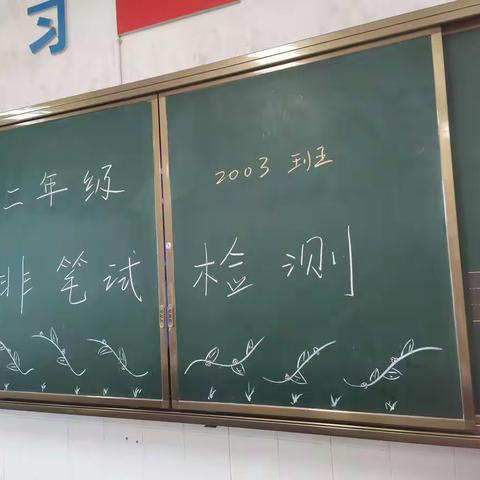 习
二年级 2003班
非笔试检测